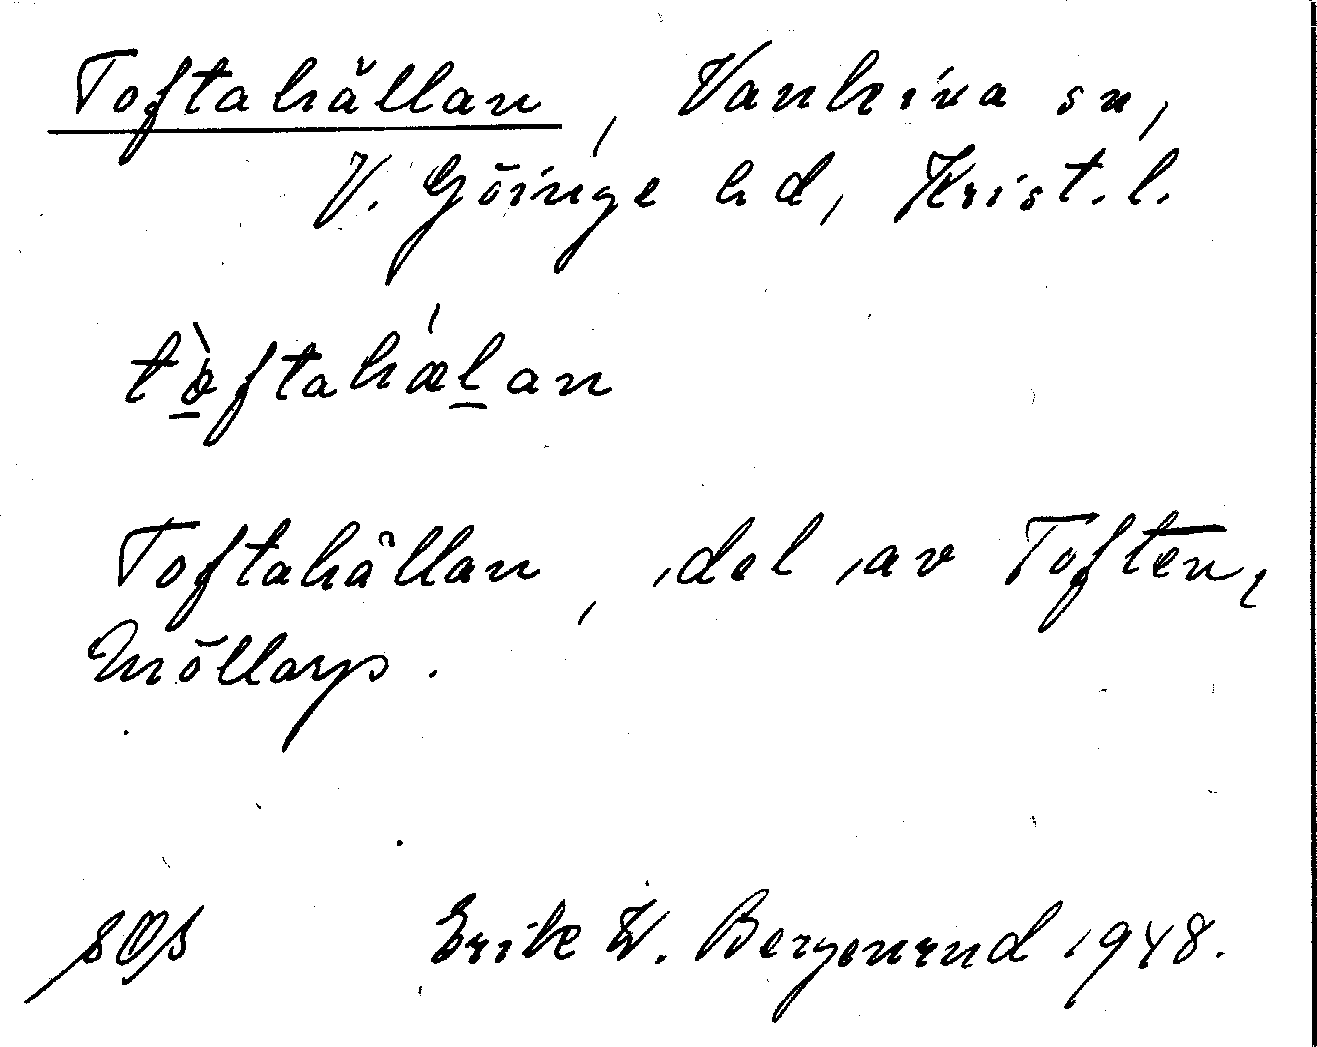 Toftahällan, Vankiva sn,
V. Göinge hd, Krist. l.
tòftahǽlan
Toftahällan, del av Toften,
Möllarp.
Erik W. Bergenrud 1948.